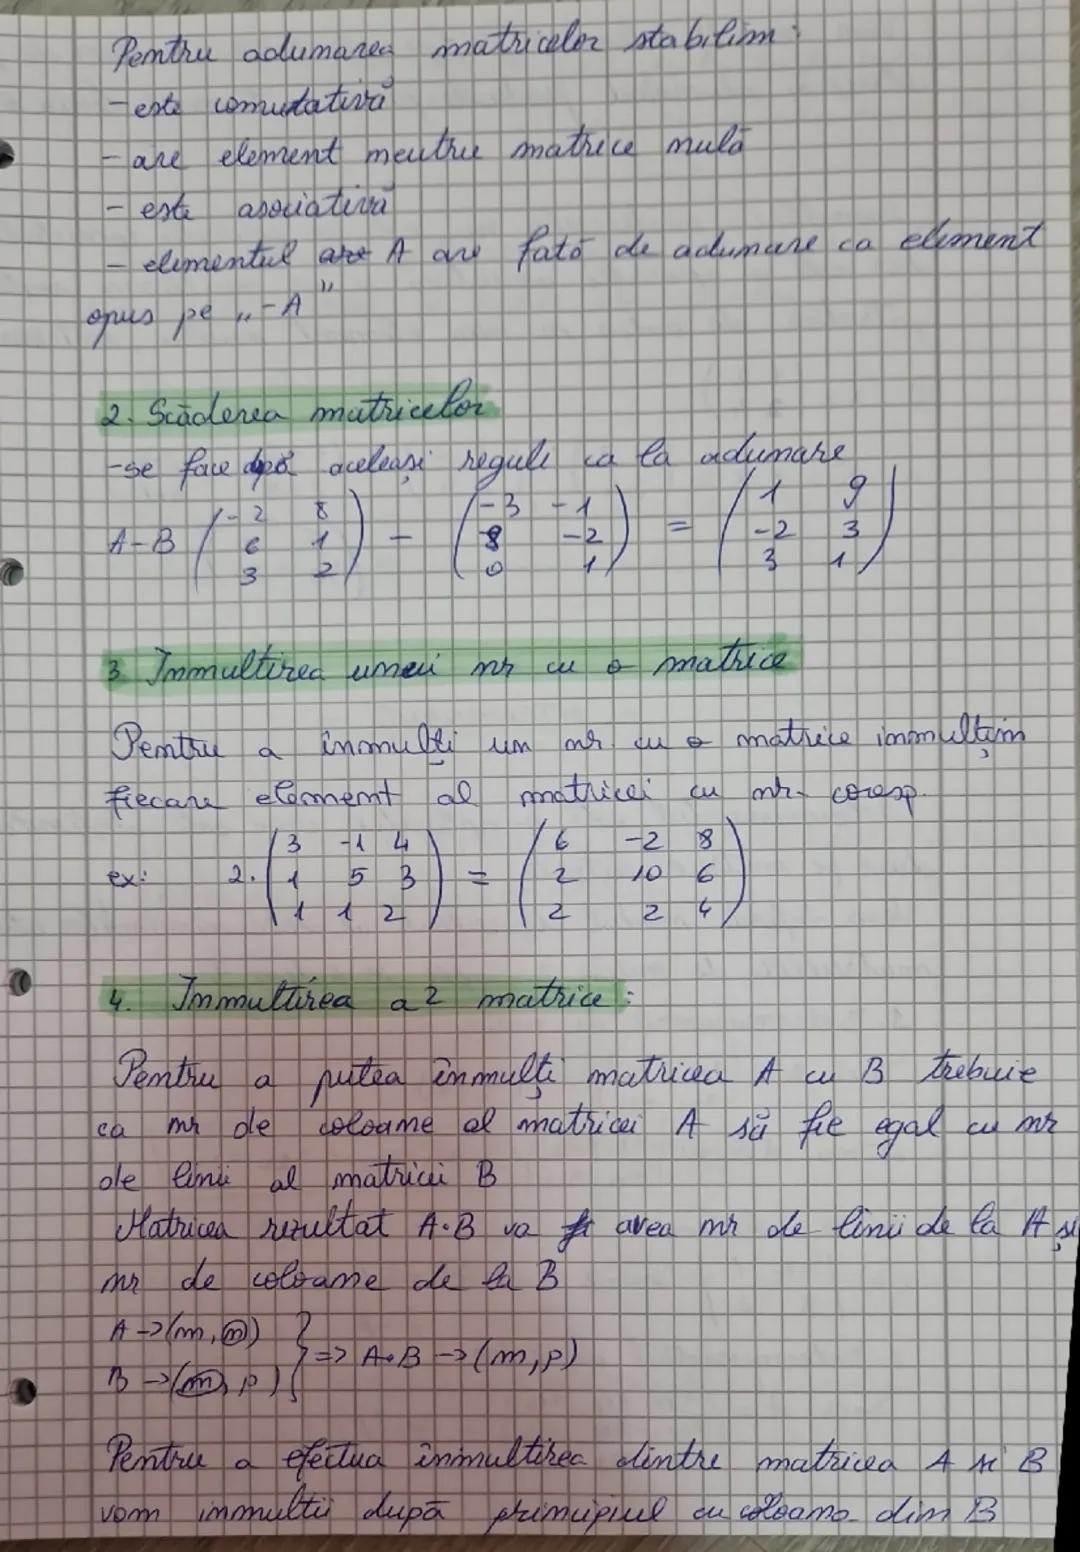 Pentru adumarea matricelor stabilim:
- este comutativă
- are element neutru matrice nulă
- este asociativă
- elementul are A are fată de adunare ca element
opus pe „-A”
2. Scăderea matricelor
- se face după aceleași reguli ca la adunare
A-B ( -2 8 ) - ( -3 -1 ) = ( 1 9 )
6 1 8 -2 -2 3
3 2 0 1 3 1
3. Inmultirea unui nr cu o matrice
Pentru a inmulți un nr. cu o matrice inmulțim
fiecare element al matricei cu nr. coresp.
ex: 2. ( 3 -1 4 ) = ( 6 -2 8 )
1 5 3 2 10 6
1 1 2 2 2 4
4. Inmultirea a 2 matrice:
Pentru a putea înmulți matricea A cu B trebuie
ca nr de coloane al matricei A să fie egal cu nr
de linii al matricii B
Matricea rezultat A·B va avea nr de linii de la A și
nr de coloane de la B
A->(m,n)
B->(n,p) } => A·B -> (m,p)
Pentru a efectua înmultirea dintre matricea A și B
vom inmultii după principiul cu coloana din B